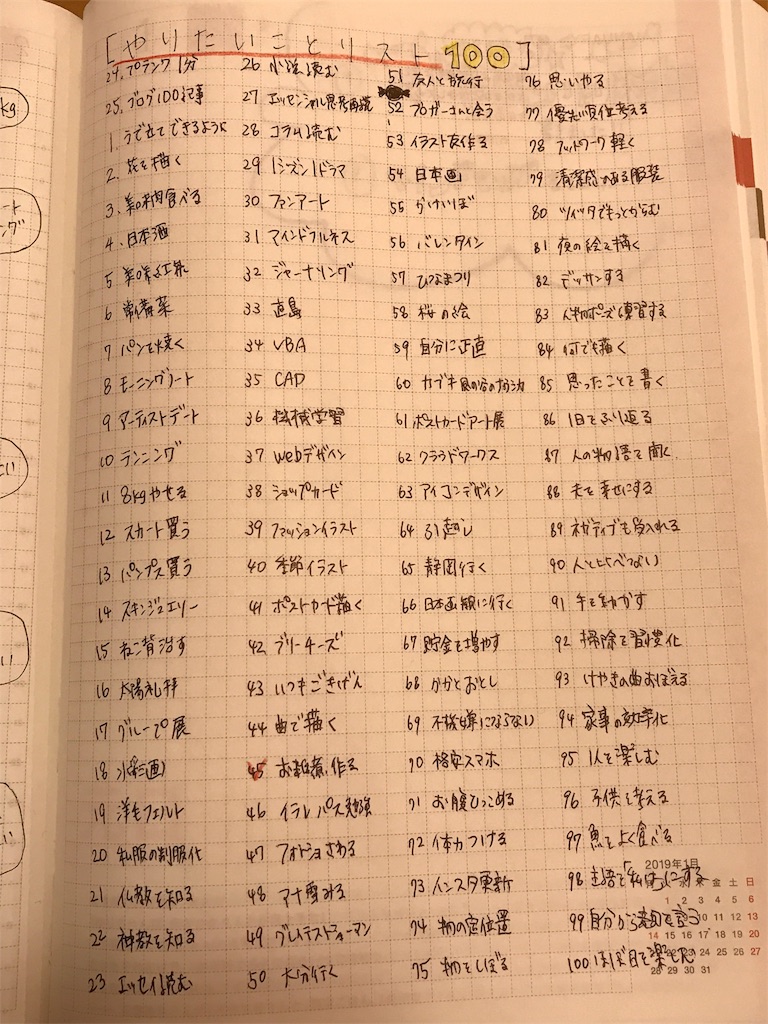 [やりたいことリスト100]
24. プランク1分
25. ブログ100記事
1. うで立てできるように
2. 花を描く
3. 美味肉食べる
4. 日本酒
5 美味紅茶
6 常備菜
7 パンを焼く
8 モーニングノート
9 アーティストデート
10 ランニング
11 8kgやせる
12 スカート買う
13 パンプス買う
14 スキンジュエリー
15 ねこ背治す
16 太陽礼拝
17 グループ展
18 水彩画
19 羊毛フェルト
20 私服の制服化
21 仏教を知る
22 神教を知る
23 エッセイ読む
26 小説読む
27 エッセンシャル思考再読
28 コラム読む
29 1シーズン1ドラマ
30 ファンアート
31 マインドフルネス
32 ジャーナリング
33 直島
34 VBA
35 CAD
36 機械学習
37 Webデザイン
38 ショップカード
39 ファッションイラスト
40 季節イラスト
41 ポストカード描く
42 ブリーチーズ
43 いつもごきげん
44 曲で描く
45 お雑煮作る
46 イラレパス勉強
47 フォトショさわる
48 アナ雪みる
49 グレイテストショーマン
50 大分行く
51 友人と旅行
52 ブロガーさんと会う
53 イラスト友作る
54 日本画
55 かけいぼ
56 バレンタイン
57 ひなまつり
58 桜の絵
59 自分に正直
60 カブキ 風の谷のナウシカ
61 ポストカードアート展
62 クラウドワークス
63 アイコンデザイン
64 引越し
65 静岡行く
66 日本画観に行く
67 貯金を増やす
68 かかとおとし
69 不機嫌にならない
70 格安スマホ
71 お腹ひっこめる
72 体力つける
73 インスタ更新
74 物の定位置
75 物をしぼる
76 思いやる
77 優先順位考える
78 フットワーク軽く
79 清潔感のある服装
80 ツイッタでもっとからむ
81 夜の絵を描く
82 デッサンする
83 人物ポーズ練習する
84 何でも描く
85 思ったことを書く
86 1日をふり返る
87 人の物語を聞く
88 夫を幸せにする
89 ネガティブも受入れる
90 人と比べない
91 手を動かす
92 掃除を習慣化
93 けやきの曲おぼえる
94 家事の効率化
95 1人を楽しむ
96 子供を考える
97 魚をよく食べる
98 主語を「私は」にする
99 自分から
100 ほぼ日を楽しむ
2019年1月
金 土 日
1 2 3 4 5 6
10 11 12 13
14 15 16 17 18 19 20
22 23 24 25 26 27
28 29 30 31
kg